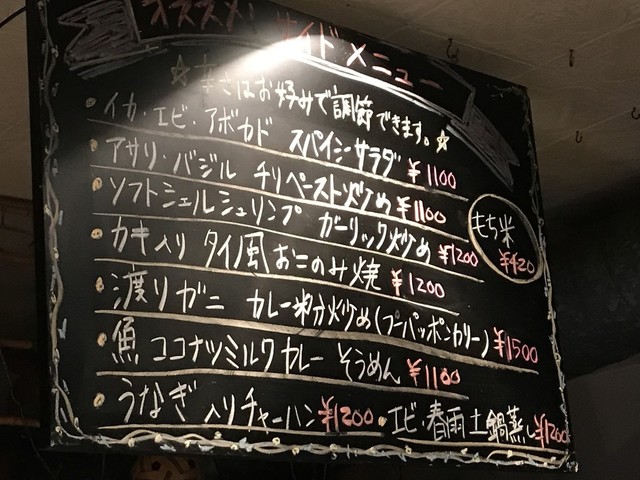 オススメ！サイドメニュー
☆辛さはお好みで調節できます。☆
・イカ・エビ・アボカド スパイシーサラダ ¥1100
・アサリ・バジル チリペースト炒め ¥1100
・ソフトシェルシュリンプ ガーリック炒め ¥1200
もち米 ¥420
・カキ入り タイ風おこのみ焼 ¥1200
・渡りガニ カレー粉炒め(プーパッポンカリー) ¥1500
・魚 ココナツミルクカレー そうめん ¥1100
・うなぎ入りチャーハン ¥1200 ・エビ、春雨土鍋蒸し ¥1200